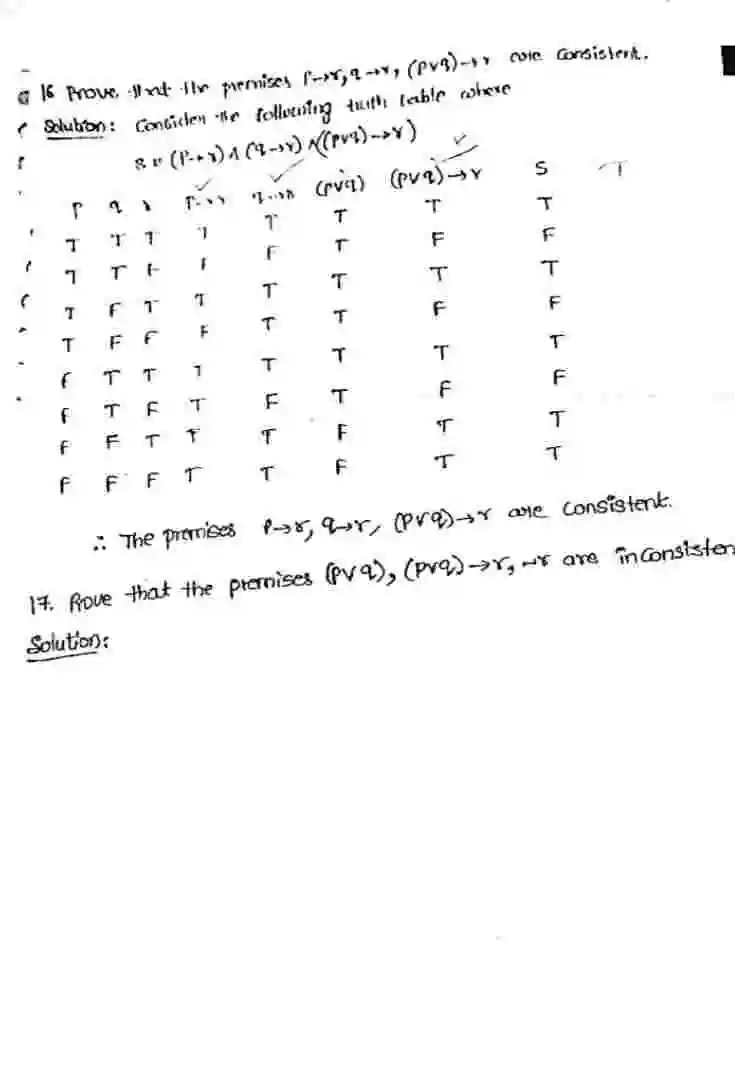 16 Prove that the premises P→r, q→r, (pvq)→r are Consistent.
Solution: Consider the following truth table where
(P→r) ∧ (q→r) ∧ ((pvq)→r)
P q r P→r q→r (pvq) (pvq)→r S T
T T T T T T T T
T T F F T F F
T F T T T T T T
T F F F T T F F
F T T T T T T T
F T F T F T F F
F F T T T F T T
F F F T T F T T
∴ The premises P→r, q→r, (pvq)→r are consistent.
17. Prove that the premises (pvq), (pvq)→r, ~r are inconsisten
Solution: